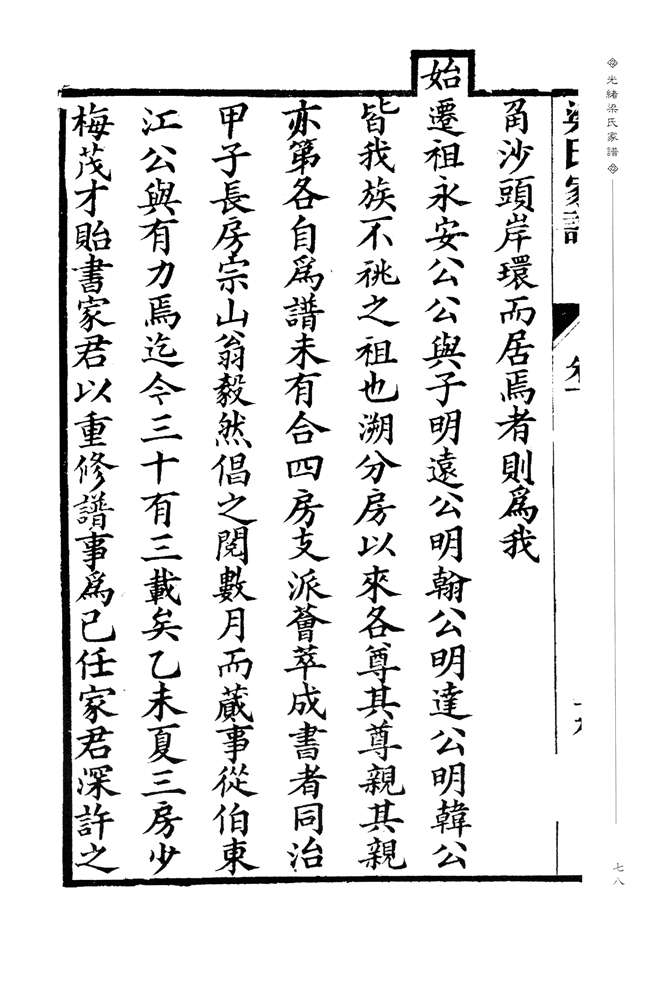 光緒梁氏家譜
七八
甬沙頭岸環而居焉者則爲我
始遷祖永安公公與子明遠公明翰公明達公明韓公
皆我族不祧之祖也溯分房以來各尊其尊親其親
亦第各自爲譜未有合四房支派薈萃成書者同治
甲子長房宗山翁毅然倡之閱數月而蕆事從伯東
江公與有力焉迄今三十有三載矣乙未夏三房少
梅茂才貽書家君以重修譜事爲己任家君深許之